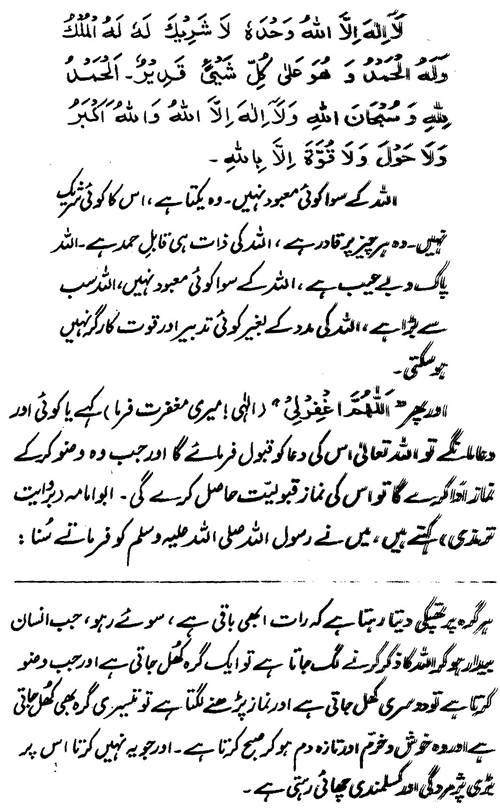 لَآ اِلٰهَ اِلَّا اللهُ وَحْدَهٗ لَا شَرِيْكَ لَهٗ لَهُ الْمُلْكُ
وَلَهُ الْحَمْدُ وَ هُوَ عَلٰى كُلِّ شَيْئٍ قَدِيْرٌ۔ اَلْحَمْدُ
لِلّٰهِ وَ سُبْحَانَ اللهِ وَلَآ اِلٰهَ اِلَّا اللهُ وَاللهُ اَكْبَرُ
وَلَا حَوْلَ وَلَا قُوَّةَ اِلَّا بِاللهِ۔
اللہ کے سوا کوئی معبود نہیں۔ وہ یکتا ہے، اس کا کوئی شریک
نہیں۔ وہ ہر چیز پر قادر ہے، اللہ کی ذات ہی قابلِ حمد ہے۔ اللہ
پاک و بے عیب ہے، اللہ کے سوا کوئی معبود نہیں، اللہ سب
سے بڑا ہے، اللہ کی مدد کے بغیر کوئی تدبیر اور قوت کارگر نہیں
ہو سکتی۔
اور پھر "اَللّٰهُمَّ اغْفِرْلِيْ" (الٰہی! میری مغفرت فرما) کہے یا کوئی اور
دعا مانگے تو اللہ تعالیٰ اس کی دعا کو قبول فرمائے گا اور جب وہ وضو کر کے
نماز ادا کرے گا تو اس کی نماز قبولیّت حاصل کرے گی۔ ابو امامہ (بروایت
ترمذی) کہتے ہیں، میں نے رسول اللہ صلی اللہ علیہ وسلم کو فرماتے سُنا:
ہر گرہ پر تھپکی دیتا رہتا ہے کہ رات ابھی باقی ہے، سوئے رہو، جب انسان
بیدار ہو کر اللہ کا ذکر کرنے لگ جاتا ہے تو ایک گرہ کُھل جاتی ہے اور جب وضو
کرتا ہے تو دوسری کھل جاتی ہے اور نماز پڑھنے لگتا ہے تو تیسری گرہ بھی کُھل جاتی
ہے اور وہ خوش و خرّم اور تازہ دم ہو کر صبح کرتا ہے۔ اور جو یہ نہیں کرتا اس پر
بڑی پژمردگی اور کسلمندی چھائی رہتی ہے۔